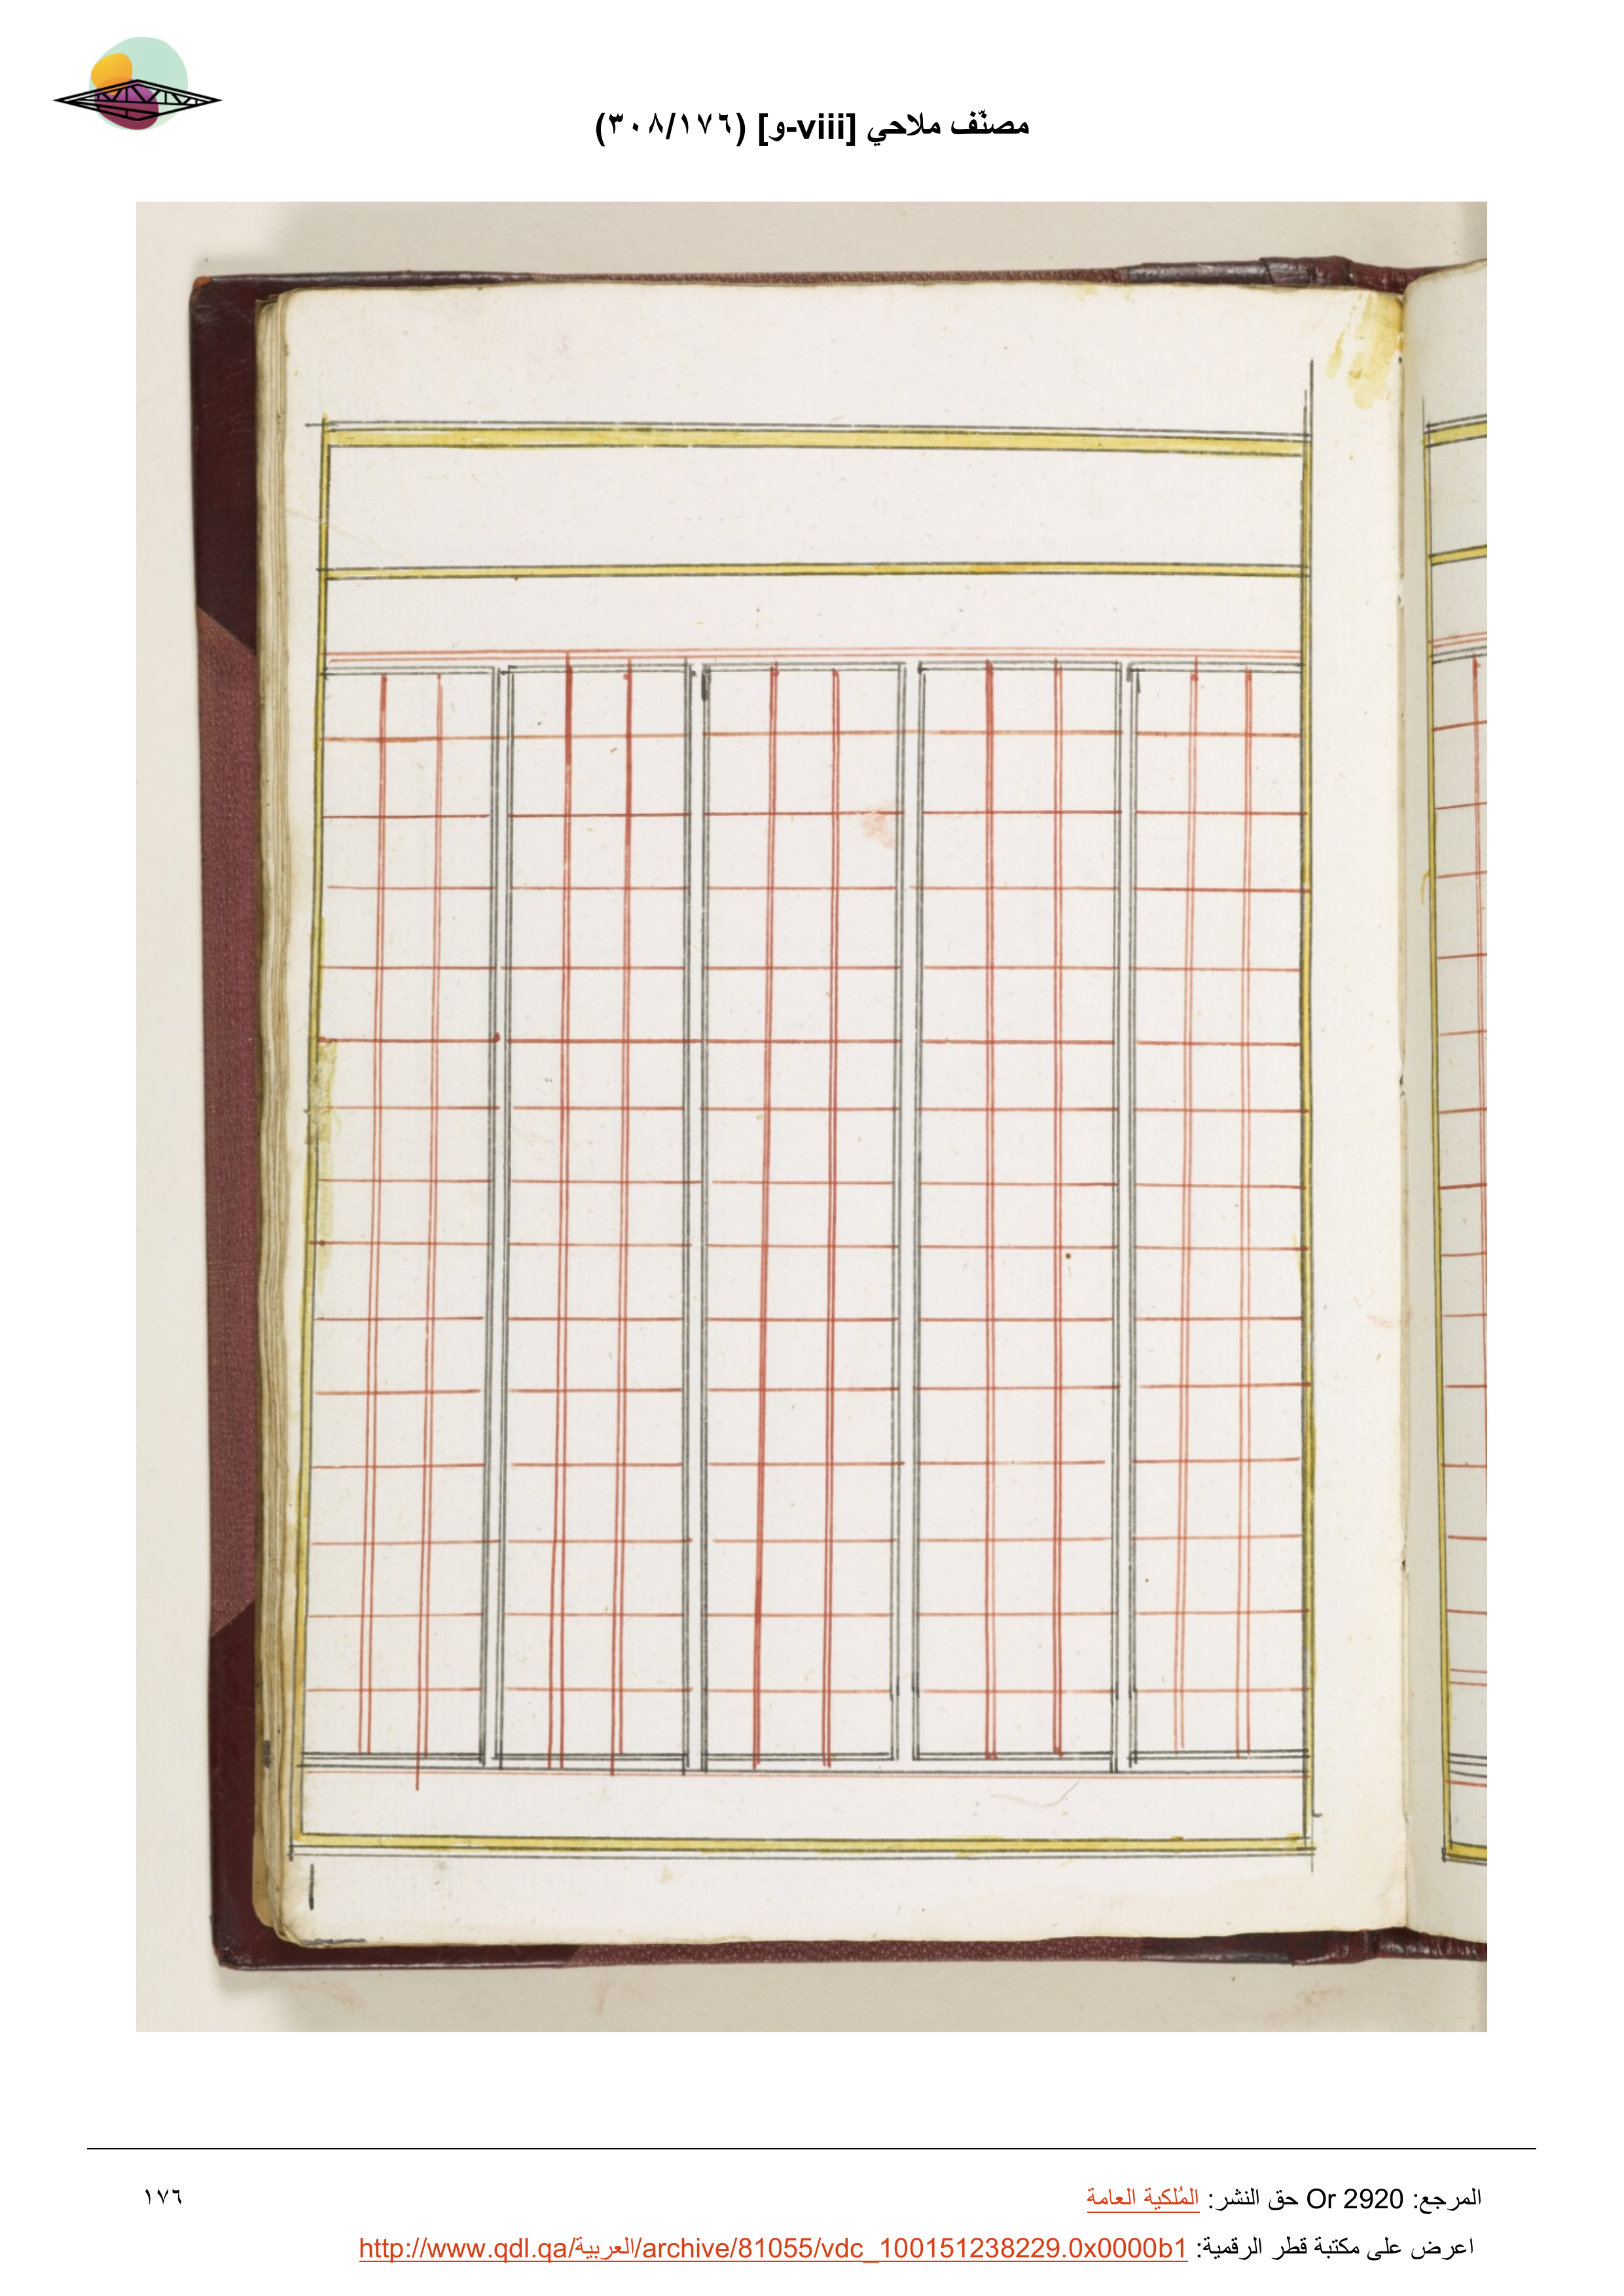 مصنّف ملاحي [viii-و] (٣٠٨/١٧٦)
المرجع: Or 2920 حق النشر: المُلكية العامة
١٧٦
اعرض على مكتبة قطر الرقمية: http://www.qdl.qa/العربية/archive/81055/vdc_100151238229.0x0000b1